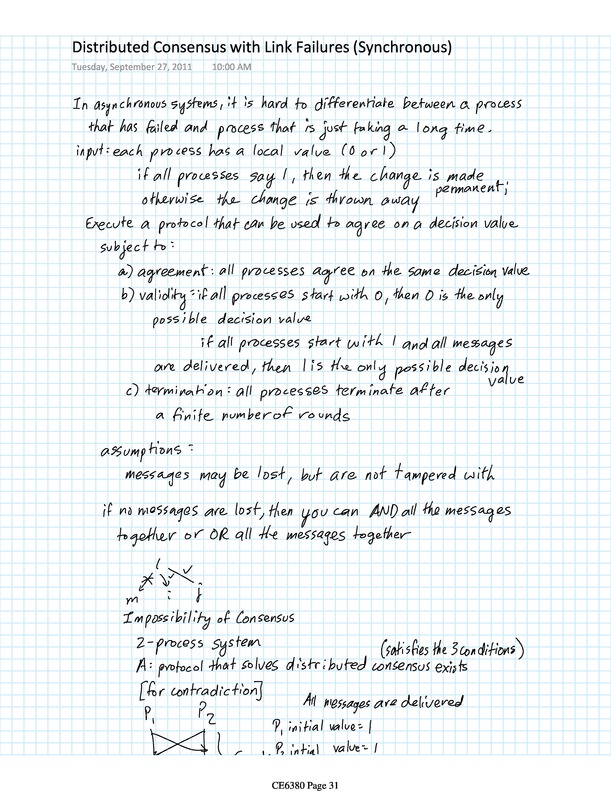 Distributed Consensus with Link Failures (Synchronous)
Tuesday, September 27, 2011 10:00 AM
In asynchronous systems, it is hard to differentiate between a process
that has failed and process that is just taking a long time.
input: each process has a local value (0 or 1)
if all processes say 1, then the change is made
permanent;
otherwise the change is thrown away
Execute a protocol that can be used to agree on a decision value
subject to:
a) agreement: all processes agree on the same decision value
b) validity: if all processes start with 0, then 0 is the only
possible decision value
if all processes start with 1 and all messages
are delivered, then 1 is the only possible decision
value
c) termination: all processes terminate after
a finite number of rounds
assumptions:
messages may be lost, but are not tampered with
if no messages are lost, then you can AND all the messages
together or OR all the messages together
l
m i j
Impossibility of Consensus
2-process system
(satisfies the 3 conditions)
A: protocol that solves distributed consensus exists
[for contradiction]
All messages are delivered
P1 P2
P1 initial value = 1
P2 intial value = 1
CE6380 Page 31